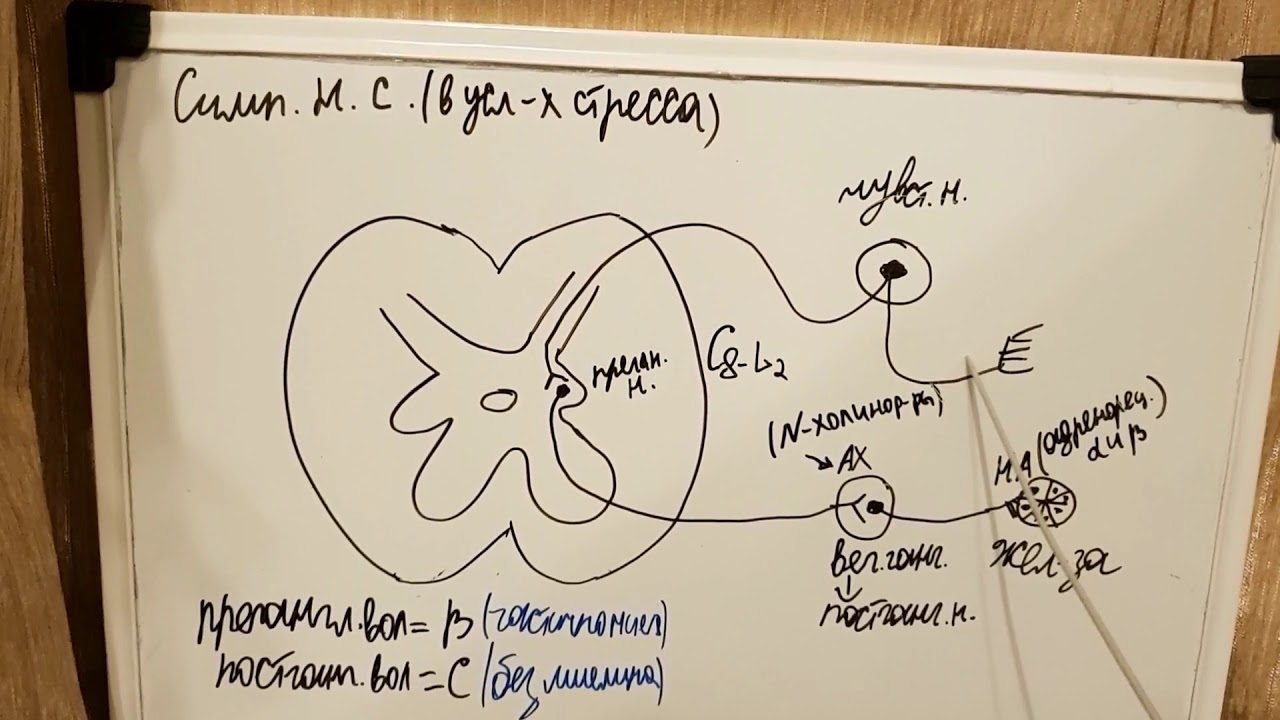 Симп. Н. С. (в усл-х стресса)
чувст. н.
преган.
н.
C8-L2
(N-холинор-ры)
АХ
Н.А (адренорец.)
α и β
вег. ганг.
постганг. н.
Жел-за
преганг л. вол = β (част. миелин)
постганг. вол = С (без миелина)